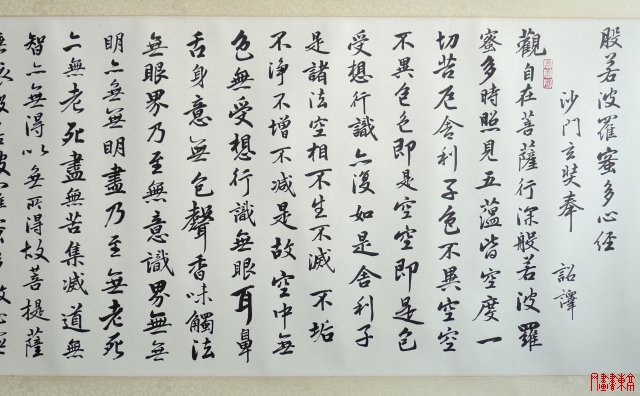 般若波羅蜜多心経
沙門玄奘奉 詔譯
觀自在菩薩行深般若波羅
蜜多時照見五蕴皆空度一
切苦厄舍利子色不異空空
不異色色即是空空即是色
受想行識亦復如是舍利子
是諸法空相不生不滅不垢
不淨不增不减是故空中無
色無受想行識無眼耳鼻
舌身意無色聲香味觸法
無眼界乃至無意識界無無
明亦無無明盡乃至無老死
亦無老死盡無苦集滅道無
智亦無得以無所得故菩提薩